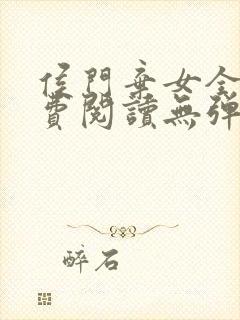 侯門棄女全
費閱讀無彈
醉石